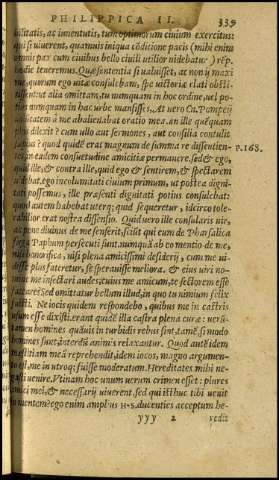 PHILIPPICA II. 339
ac iuuentutis, tum optimorum ciuium exercitus:
qui si uiuerent, quamuis iniqua cõditione pacis (mihi enim
omnis pax cum ciuibus bello ciuili utilior uidebatur) rẽp.
hodie teneremus. Quæ sententia si ualuisset, ac non ij maxi
me, quorum ego uitæ consulebam, spe uictoriæ elati obsti-
tissent: ut alia omittam, tu nunquam in hoc ordine, uel po-
tius nunquam in hac urbe mansisses. At uero Cn. Pompeij
uoluntatem à me abalienabat oratio mea. an ille quẽquam
plus dilexit? cum ullo aut sermones, aut consilia contulit
sæpius? quod quidẽ erat magnum de summa rẽ dissentien-
tes in eadem consuetudine amicitiæ permanere. sed & ego,
quid ille, & contra ille, quid ego & sentirem, & spectarem
uidebat. ego incolumitati ciuium primum, ut postea digni-
tati possemus, ille præsenti dignitati potius consulebat:
quod autem habebat uterq; quid sequeretur, idcirco tole-
rabilior erat nostra dissensio. Quid uero ille consularis uir,
ac pene diuinus de me senserit, sciũt qui eum de Pharsalica
fuga Paphum persecuti sunt. nunquã ab eo mentio de me,
nisi honorifica, nisi plena amicissimi desiderij, cum me ui-
disse plus fateretur, se sperauisse meliora. & eius uiri no-
mine me insectari audes, cuius me amicum, te sectorem esse
Sed omittatur bellum illud, in quo tu nimium felix
fuisti. Ne iocis quidem respondebo, quibus me in castris
usum esse dixisti. erant quidẽ illa castra plena curæ: uerũ-
tamen homines quãuis in turbidis rebus sint, tamẽ, si modo
homines sunt, interdũ animis relaxantur. Quod autẽ idem
mœstitiam meã reprehendit, idem iocos, magno argumen-
to est, me in utroq; fuisse moderatum. Hereditates mihi ne-
gasti uenire. Vtinam hoc unum uerum crimen esset: plures
amici mei, & necessarij uiuerent. sed qui istuc tibi uenit
in mentem? ego enim amplius H-S. ducenties acceptum he-
yyy 2 redit
P. 168.